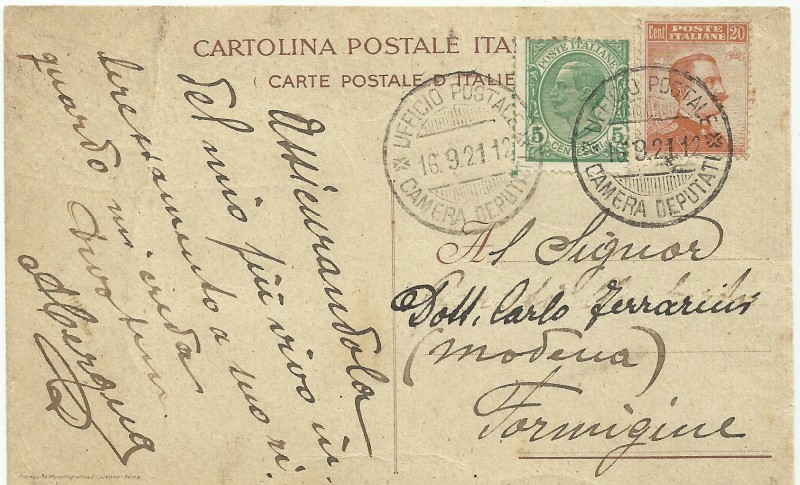 CARTOLINA POSTALE ITA
(CARTE POSTALE D'ITALIE
POSTE ITALIANE
5 CENTESIMI 5
Cent 20
POSTE
ITALIANE
UFFICIO POSTALE
16.9.21.12
CAMERA DEPUTATI
UFFICIO POSTALE
16.9.21.12
CAMERA DEPUTATI
Assicurandola
del mio più vivo in-
teressamento a suo ri-
guardo mi creda
Suo
Al Signor
Dott. Carlo Ferrarini
(Modena)
Formigine
Roma